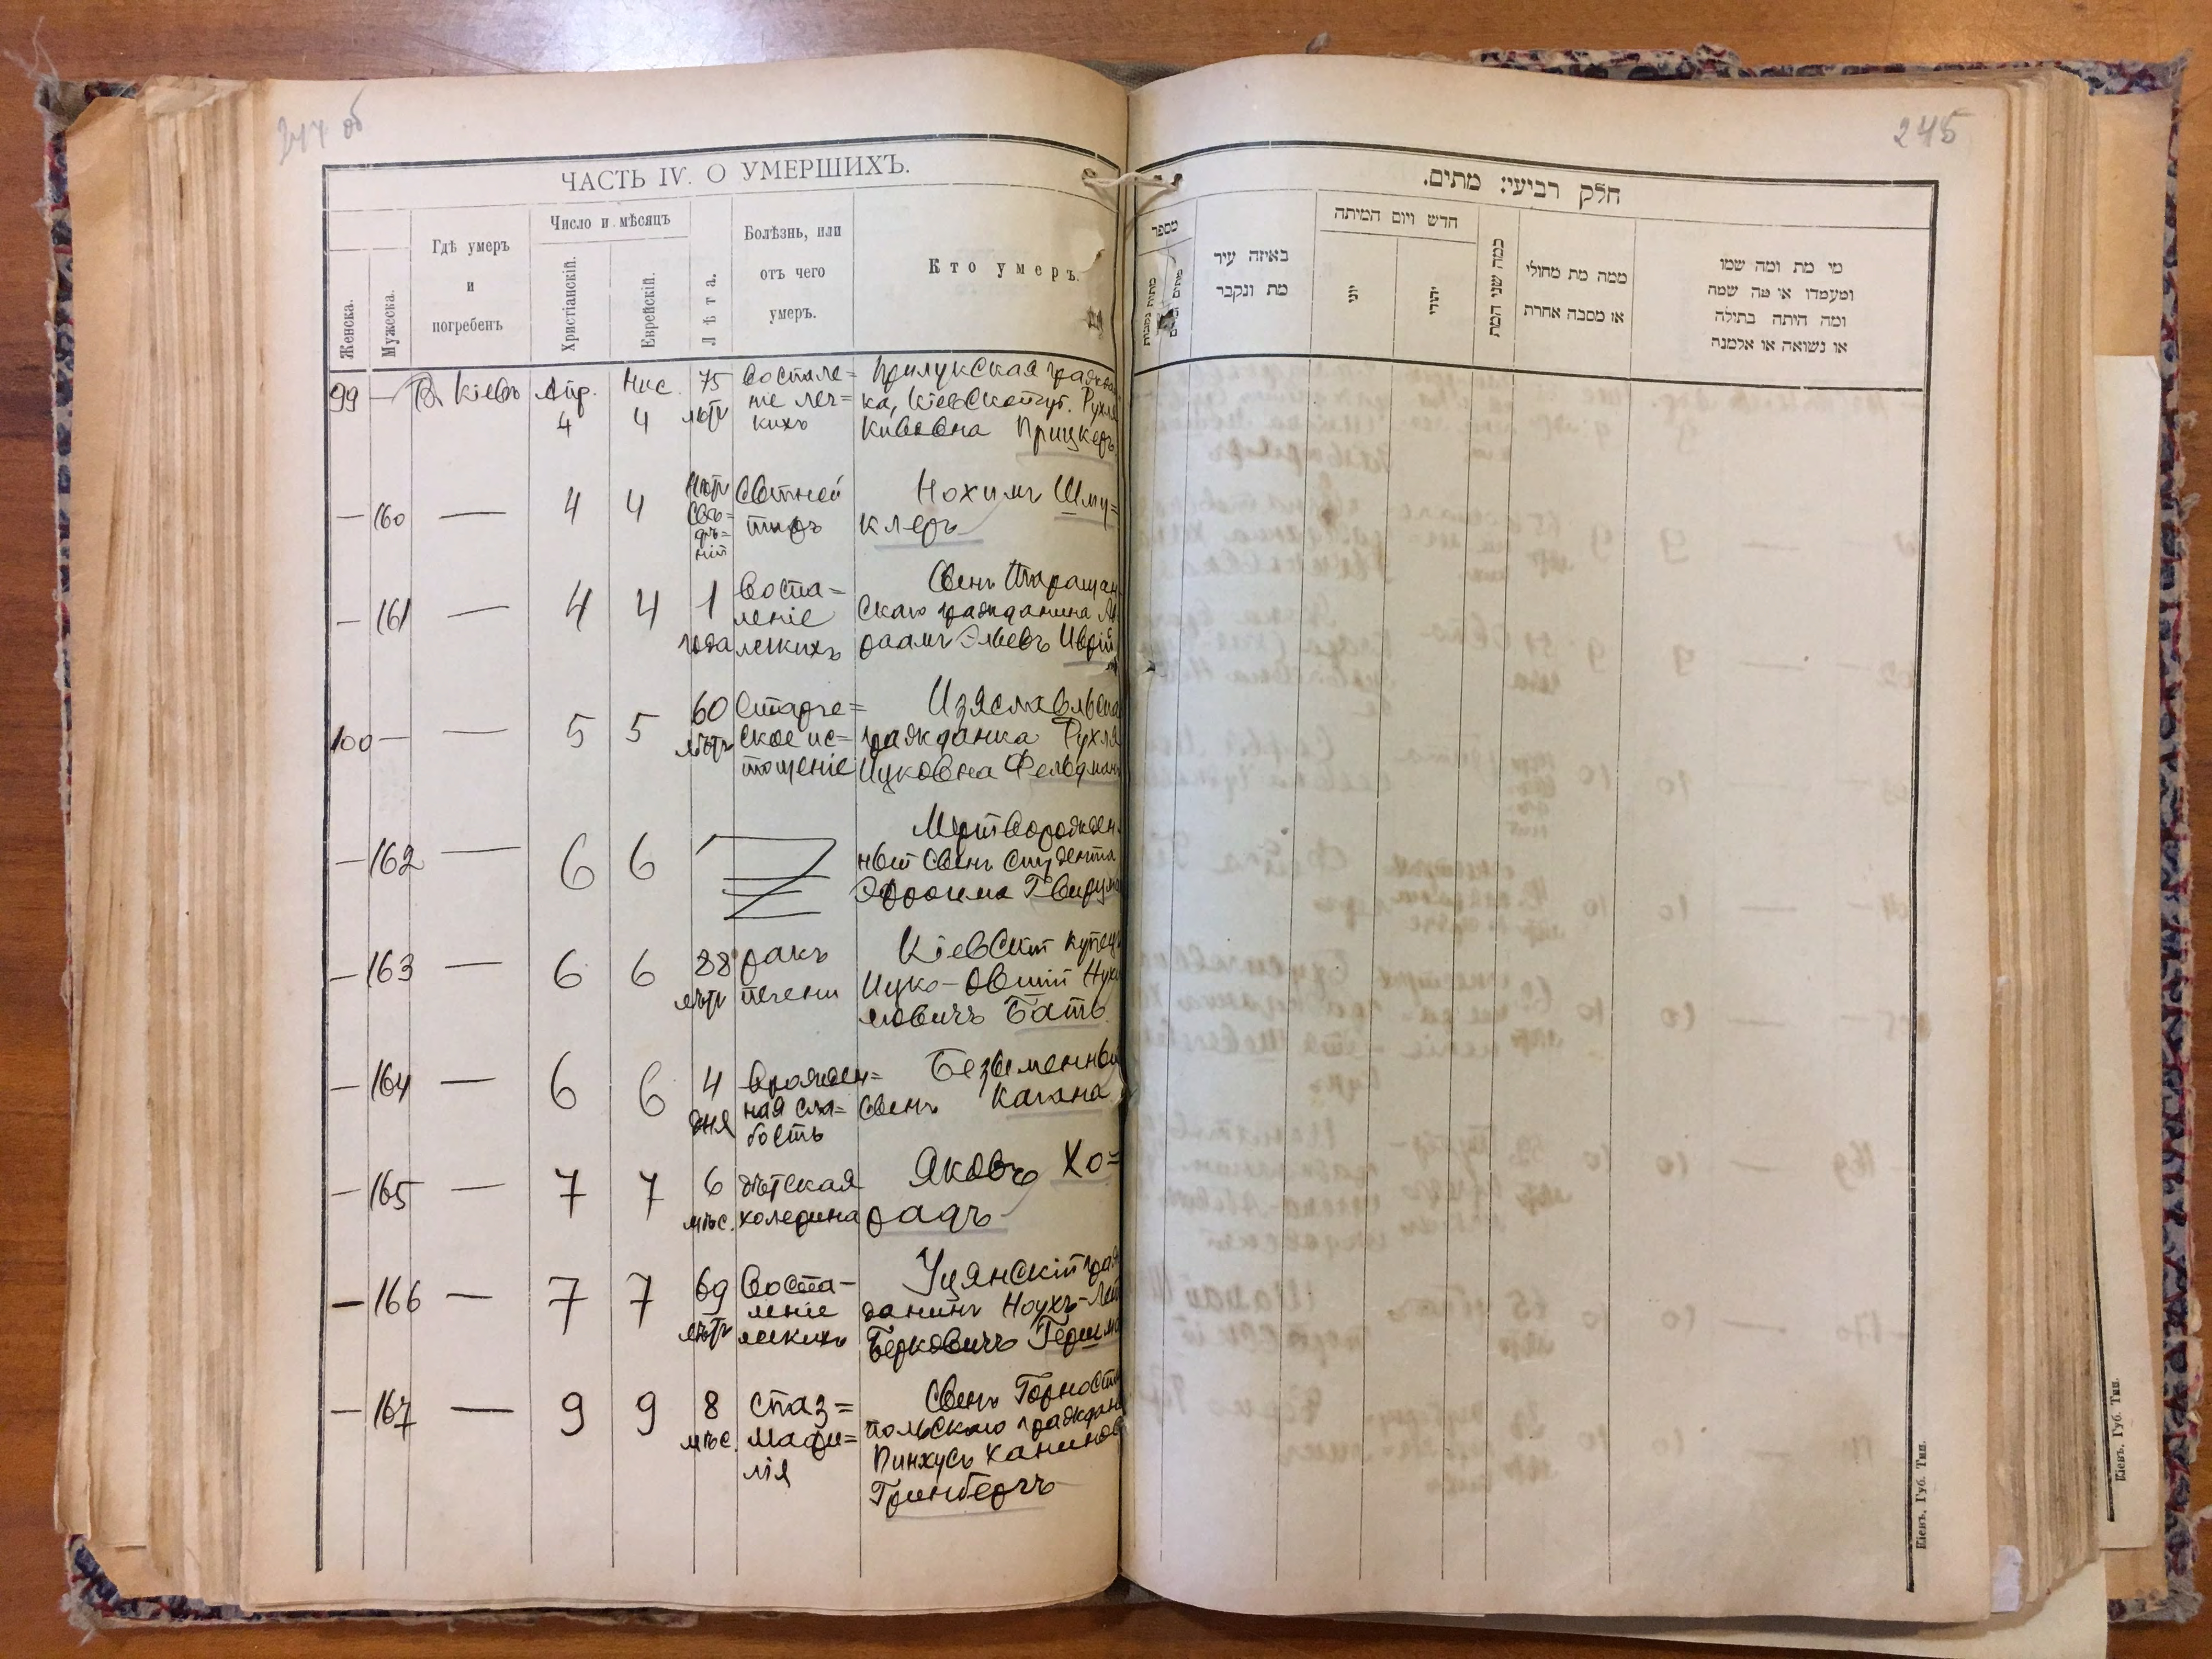 244 об
ЧАСТЬ IV. О УМЕРШИХЪ.
Женска.
Мужеска.
Гдѣ умеръ
и
погребенъ
Число и мѣсяцъ
Христіанскій.
Еврейскій.
Лѣта.
Болѣзнь, или
отъ чего
умеръ.
Кто умеръ.
99 — Въ Кіевѣ Апр. 4 Нис. 4 75 лѣтъ
Воспале=
ніе лег=
кихъ
Прилукская гражда
ка, Кіевской губ. Рухля
Кивовна Прицкеръ
— 160 — 4 4
Пять
Сва=
Нохимъ Шму=
клеръ
— 161 — 4 4 1 года
Воспа=
леніе
легкихъ
Сынъ Таращан
скаго гражданина
Эльевъ
100 — — 5 5 60 лѣтъ
Старче=
ское ис=
тощеніе
Изяславльска
гражданка Рухля
Ицковна Фельдман
— 162 — 6 6
Мертворожден
ный сынъ студента
Эфроима
— 163 — 6 6 88 лѣтъ
ракъ
печени
Кіевскій купец
Ицко-Овшій Нух
мовичъ Батъ
— 164 — 6 6 4 дня
врожден=
ная сла=
бость
Безыменный
сынъ Кагана
— 165 — 7 7 6 мѣс.
дѣтская
холерина
Яковъ Хо=
радъ
— 166 — 7 7 69 лѣтъ
Воспа-
леніе
легкихъ
Уцянскій граж
данинъ Ноухъ-Лей
Берковичъ Гершма
— 167 — 9 9 8 мѣс.
спаз=
мафи=
лія
Сынъ Горност
польскаго граждан
Пинхусъ Ханинов
Гринбергъ
245
חלק רביעי: מתים.
מספר
באיזה עיר
מת ונקבר
חדש ויום המיתה
יוני
יהודי
כמה שני המת
ממה מת מחולי
או מסבה אחרת
מי מת ומה שמו
ומעמדו או מה שמה
ומה היתה בתולה
או נשואה או אלמנה
Кіевъ, Губ. Тип.
Кіевъ, Губ. Тип.